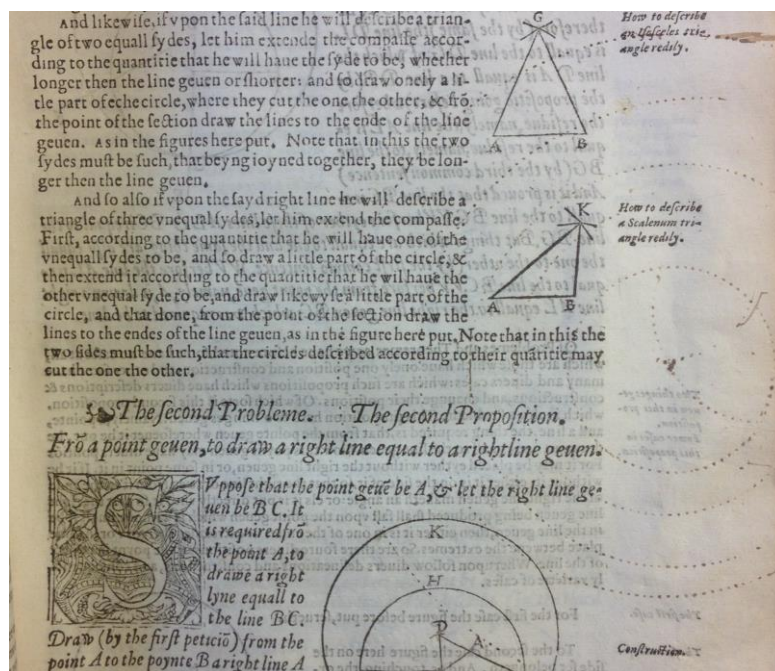 And likewiſe, if vpon the ſaid line he will deſcribe a trian-
gle of two equall ſydes, let him extende the compaſſe accor-
ding to the quantitie that he will haue the ſyde to be, whether
longer then the line geuen or ſhorter: and ſo draw onely a li-
tle part of eche circle, where they cut the one the other, & frō
the point of the ſection draw the lines to the ende of the line
geuen. As in the figures here put. Note that in this the two
ſydes muſt be ſuch, that beyng ioyned together, they be lon-
ger then the line geuen.
G
A B
How to deſcribe
an Iſoſceles trie
angle redily.
And ſo alſo if vpon the ſayd right line he will deſcribe a
triangle of three vnequall ſydes, let him extend the compaſſe.
Firſt, according to the quantitie that he will haue one of the
vnequall ſydes to be, and ſo draw a little part of the circle, &
then extend it according to the quantitie that he wil haue the
other vnequal ſyde to be, and draw likewyſe a little part of the
circle, and that done, from the point of the ſection draw the
lines to the endes of the line geuen, as in the figure here put. Note that in this the
two ſides muſt be ſuch, that the circles deſcribed according to their quātitie may
cut the one the other.
K
A B
How to deſcribe
a Scalenum tri-
angle redily.
The ſecond Probleme. The ſecond Propoſition.
Frō a point geuen, to draw a right line equal to a rightline geuen.
SVppoſe that the point geuē be A, & let the right line ge-
uen be B C. It
is required frō
the point A, to
drawe a right
lyne equall to
the line B C.
Draw (by the firſt peticiō) from the
point A to the poynte B a right line A
K
H
D
A
Conſtruction.